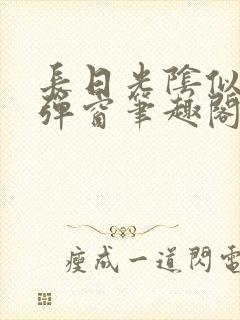 長日光陰似
彈窗筆趣閣
瘦成一道閃電